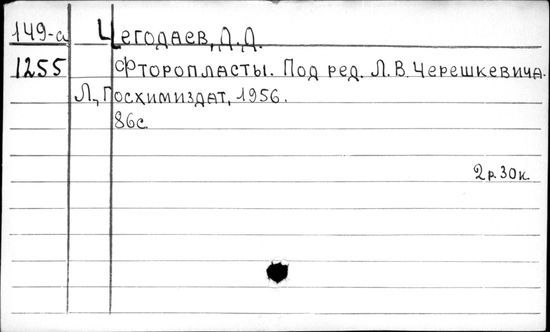 149-а Чегодаев, Д.Д.
1255 Фторопласты. Под ред. Л.В.Черешкевича.
Л., Госхимиздат, 1956.
86с.
2р.30к.